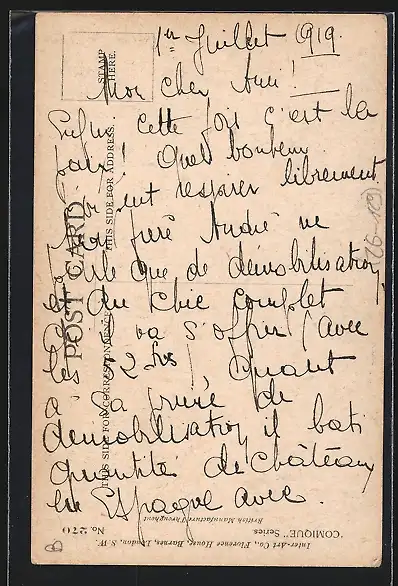 1er Juillet 1919.
Mon cher Ami!
Enfin cette fois c'est la
paix! Quel bonheur
peut respirer librement
frère André ne
parle que de démobilisation
et du chic complet
qu'il va s'offrir (avec
les 52 frs) Quant
à sa prime de
démobilisation il bâti
quantité de Châteaux
en Espagne avec.
STAMP
HERE.
POST CARD
THIS SIDE FOR ADDRESS.
THIS SIDE FOR CORRESPONDENCE
"COMIQUE" Series
No. 270
Inter-Art Co., Florence House, Barnes, London, S.W.
British Manufacture Throughout